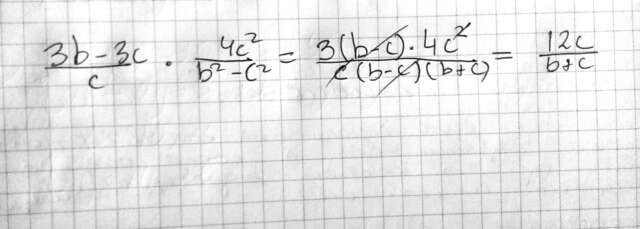 (3b-3c)/c · 4c²/(b²-c²) = 3(b-c)·4c²/(c(b-c)(b+c)) = 12c/(b+c)